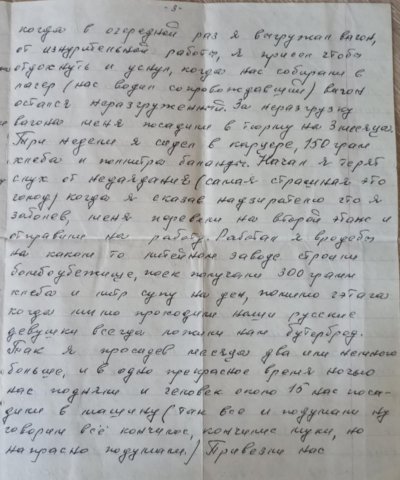 -3-
когда в очередной раз я выгружал вагон,
от изнурительной работы, я присел чтобы
отдохнуть и уснул, когда нас собирали в
лагер (нас водил сопровождавший) вагон
остался неразгруженный. За неразгрузку
вагона меня посадили в тюрму на 3 месяца.
Три недели я сидел в карцере, 150 грам
хлеба и поллитра баланды. Начал я терят
слух от недаядания (самая страшная это
голод) когда я сказал надзирателю что я
заболев, меня перевели на второй этаж и
отправили на работу. Работал я вродебы
на каком то литейном заводе строили
бомбоубежище, паек получали 300 грамм
хлеба и литр супу на ден, помимо этага
когда мимо проходили наши русские
девушки всегда ложили нам бутерброд.
Так я просидев месяца два или немного
больше, и в одно прекрасное время ночью
нас подняли и человек около 15 нас поса-
дили в машину (так все и подумали ну
говорим всё кончилос, кончилис муки, но
напрасно подумали.) Привезли нас